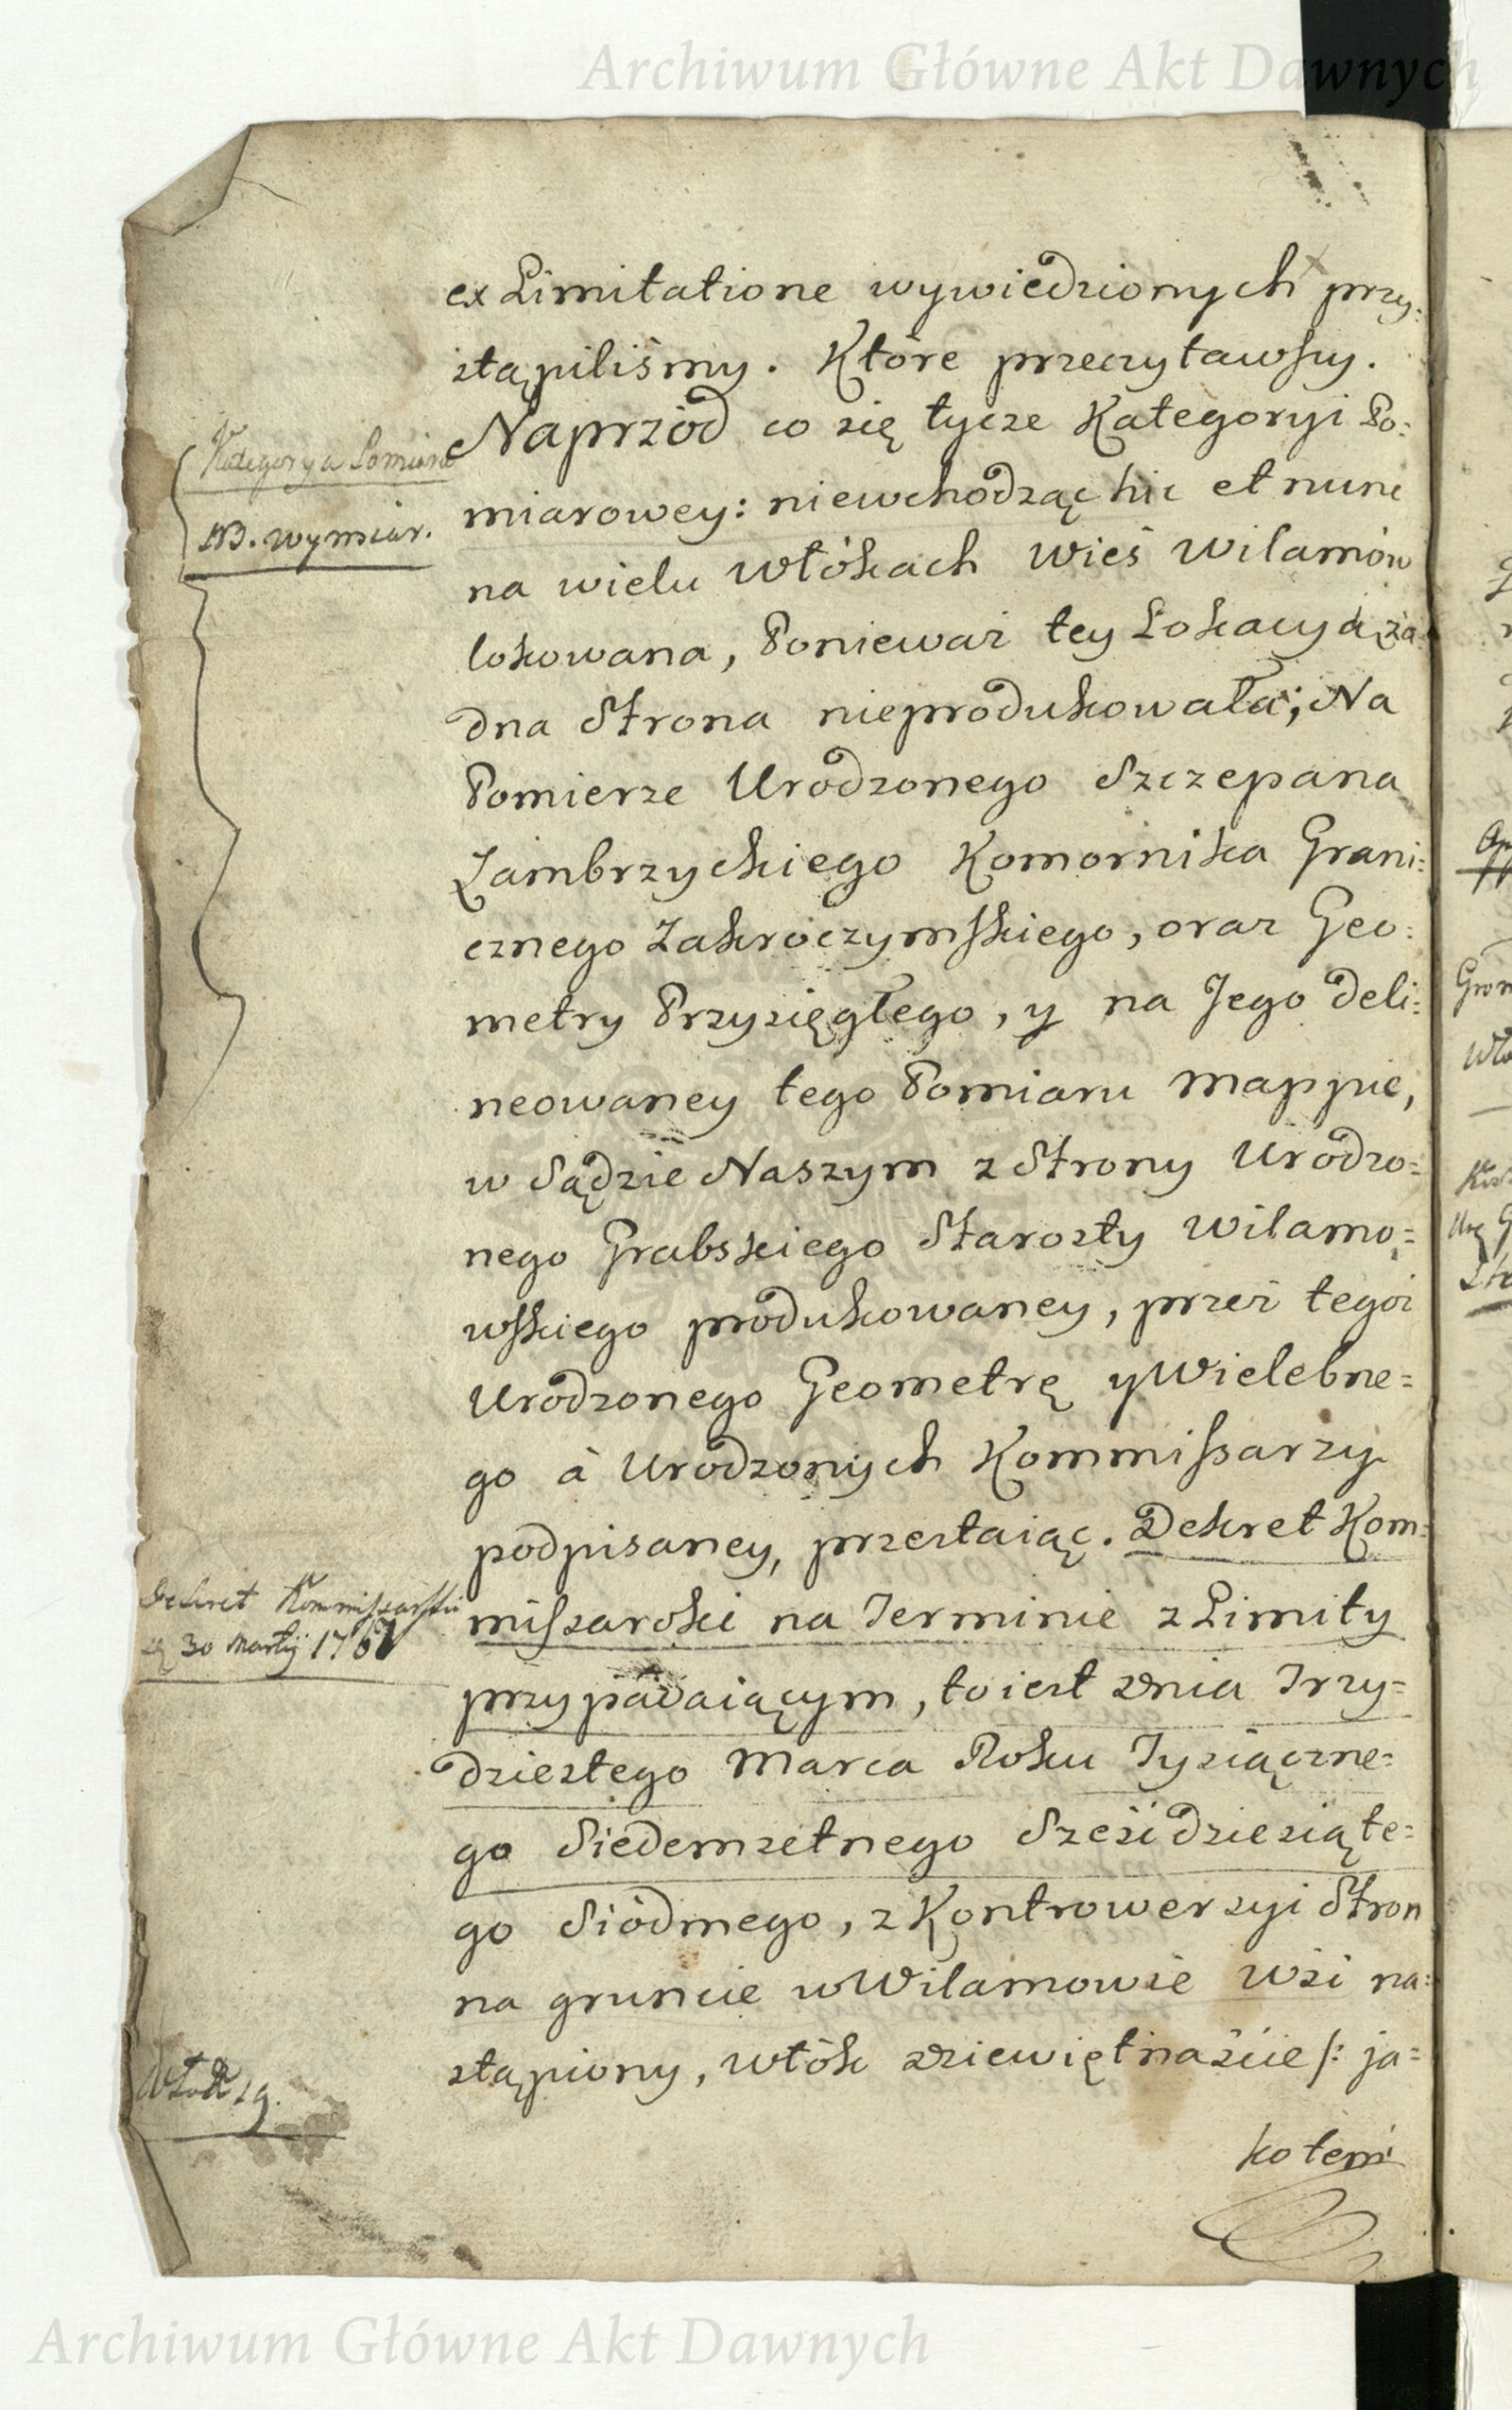 Archiwum Główne Akt Dawnych
ex Limitatione wywiedzionych przy:
stąpiliśmy. Które przeczytawszy.
Naprzód co się tycze Kategoryi Po:
miarowey: niewchodząc hic et nunc
na wielu włókach wieś Wilamów
lokowana, Poniewaz tey Lokacyi ża
dna Strona nieprodukowała; Na
Pomierze Urodzonego Szczepana
Zambrzyckiego Komornika Grani:
cznego Zakroczymskiego, oraz Geo:
metry Przysięgłego, y na Jego deli:
neowaney tego Pomiaru Mappie,
w Sądzie Naszym z Strony Urodzo=
nego Grabskiego Starosty Wilamo=
wskiego produkowaney, przez tegoz
Urodzonego Geometrę y Wielebne=
go à Urodzonych Kommissarzy
podpisaney, przestaiąc. Dekret Kom=
missarski na Terminie z Limity
przypadaiącym, to iest dnia Trzy=
dziestego Marca Roku Tysiączne=
go Siedemsetnego Sześćdziesiąte=
go Siódmego, z Kontrowersyi Stron
na gruncie w Wilamowie Wsi na=
stąpiony, włók dziewiętnaście /: ja=
ko tem
Kategorya Pomiaru
NB. wymiar.
Dekret Kommissarski
30 Martij 1767
Włók 19.
Archiwum Główne Akt Dawnych